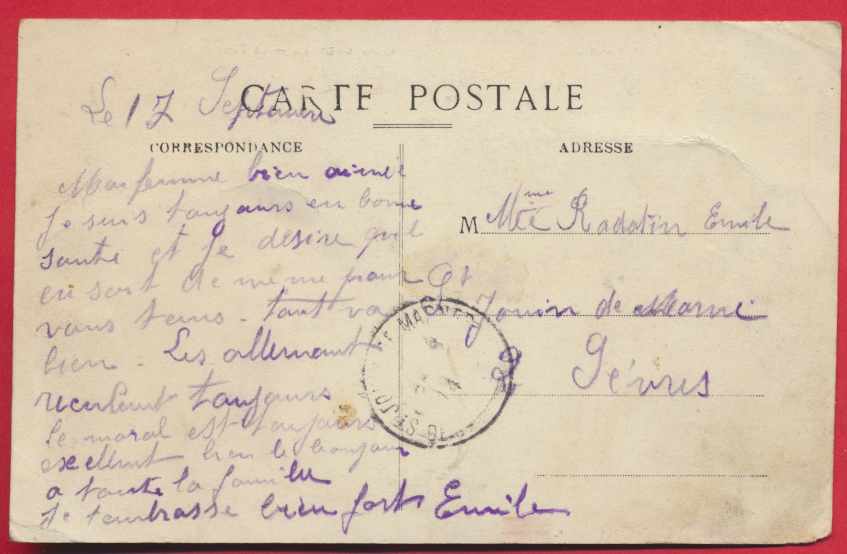 CARTE POSTALE
Le 17 Septembre
CORRESPONDANCE
Ma femme bien aimé
Je suis toujours en bonne
santé et je desire qu'il
en soit de même pour
vous tous. tout va
bien. Les allemant
reculent toujours
le moral est toujours
excellent bien le bonjour
a toute la famille
Je t'embrasse bien fort Emile
ADRESSE
M Mme Radotin Emile
St Jouin de Marne
2 Sèvres